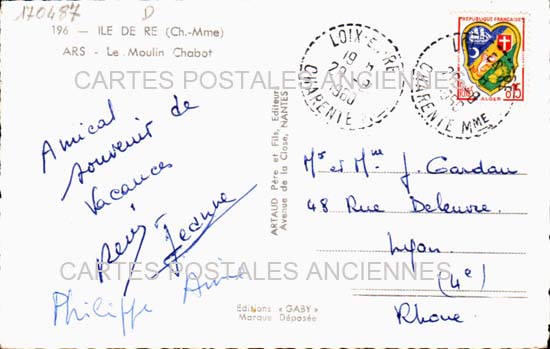 170487 D
196 - ILE DE RE (Ch.-Mme)
ARS - Le Moulin Chabot
CARTES POSTALES ANCIENNES
Amical
souvenir de
Vacances
Jeanne
Philippe
CARTES POSTALES ANCIENNES
Editions « GABY »
Marque Déposée
ARTAUD Père et Fils, Editeurs
Avenue de la Close, NANTES
LOIX-E-RE
19 H
1960
CHARENTE
CHARENTE MME
REPUBLIQUE FRANÇAISE
ALGER
Mr et Mme J. Gardan
48 Rue Deleuvre
Lyon
(4e)
Rhone